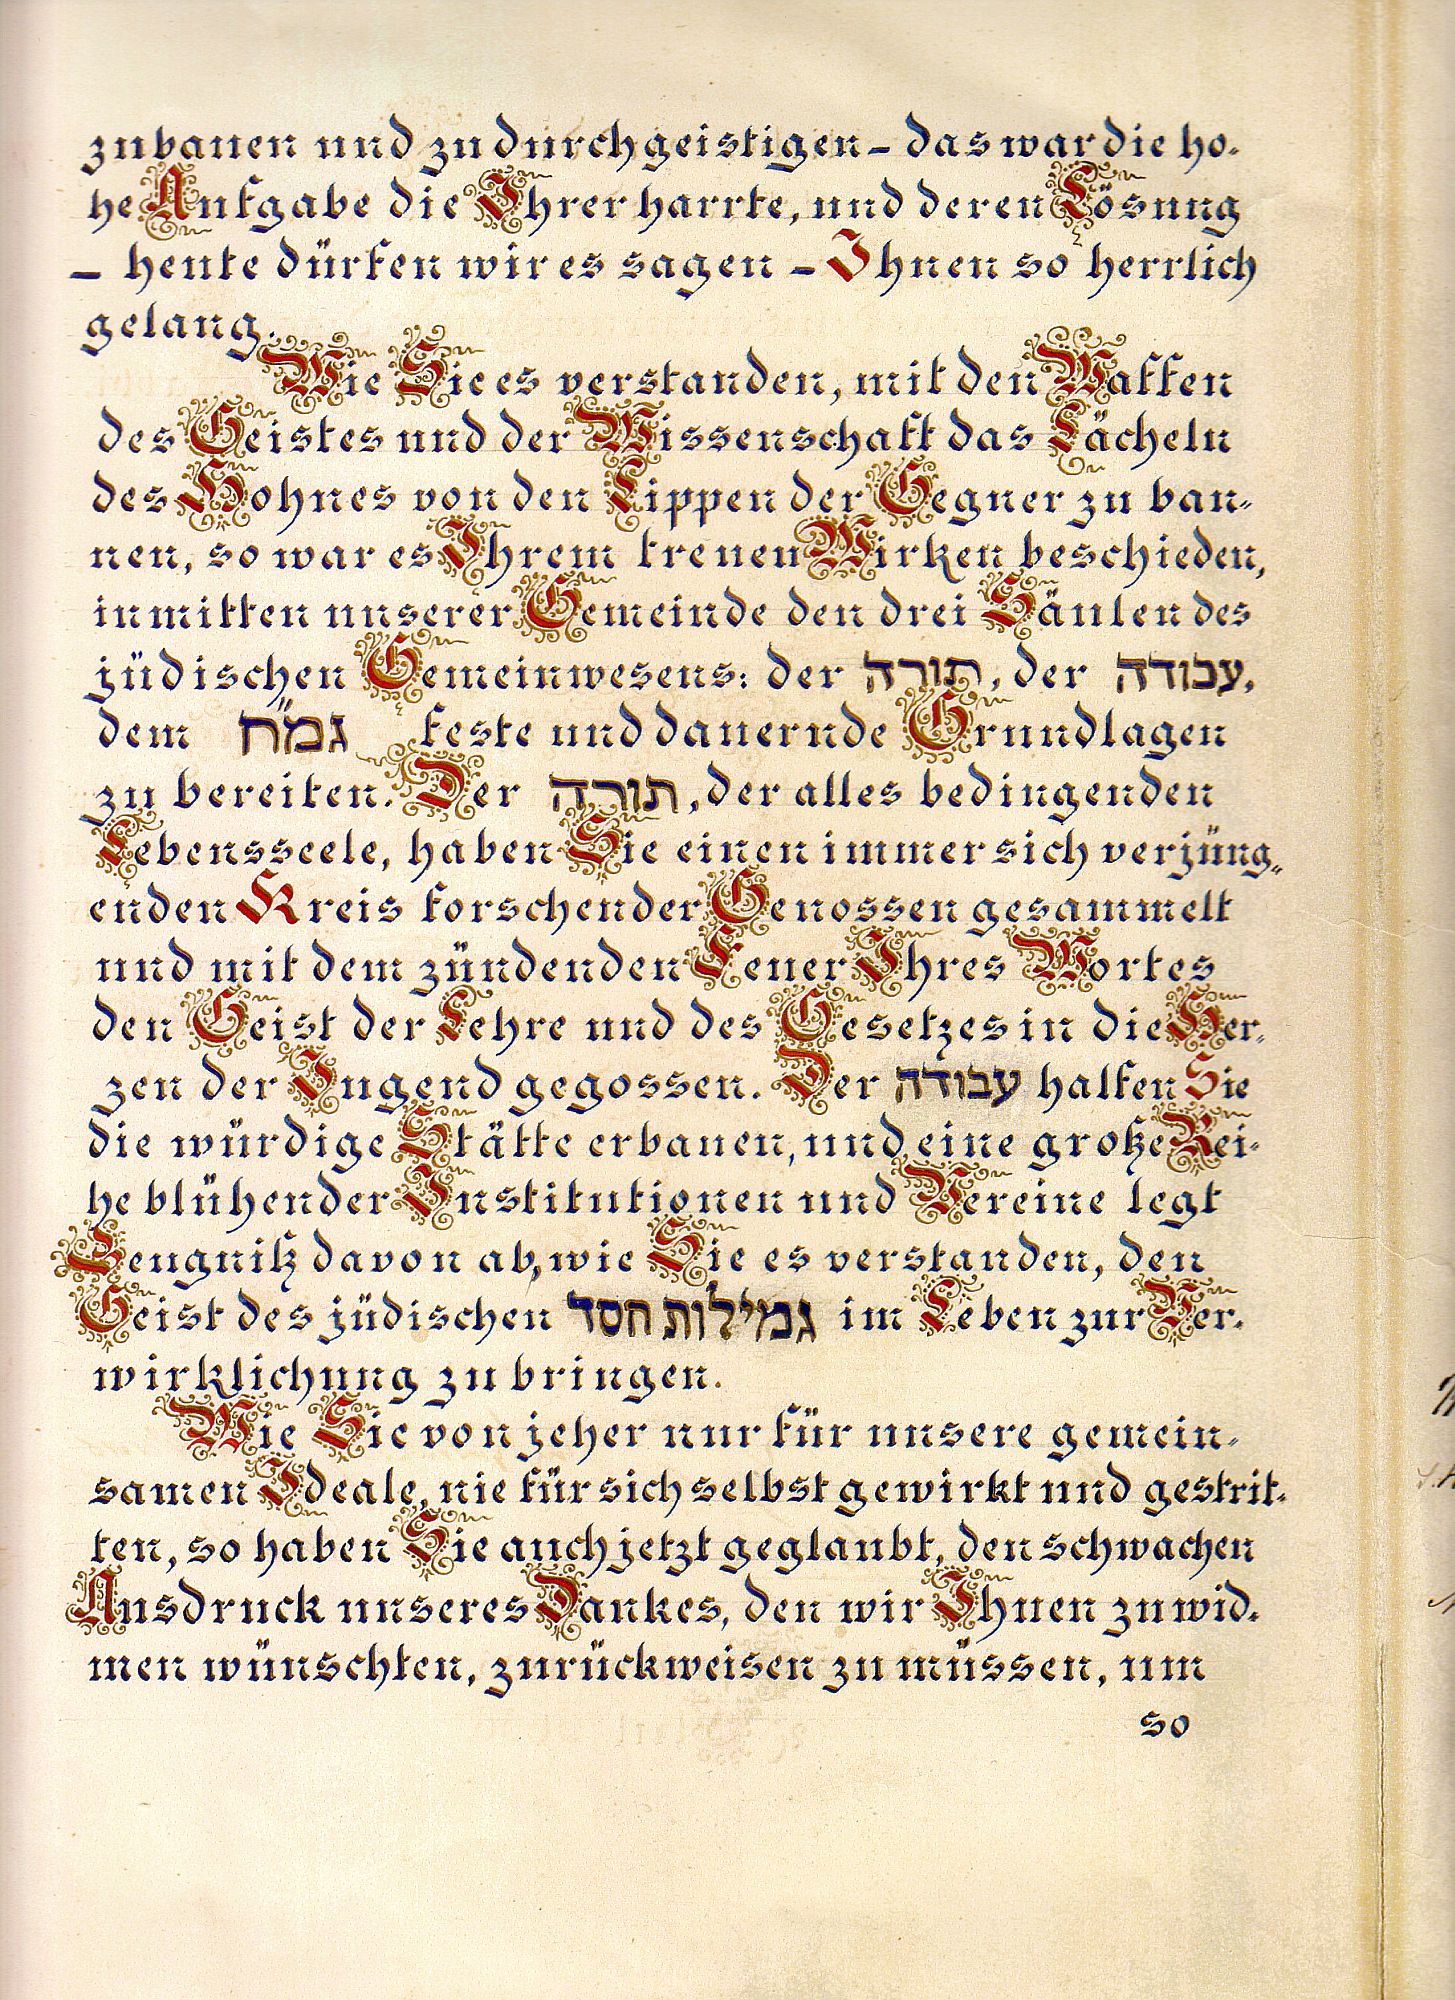 zubauen und zu durchgeistigen – das war die ho-
he Aufgabe die Ihrer harrte, und deren Lösung
– heute dürfen wir es sagen – Ihnen so herrlich
gelang.
Wie Sie es verstanden, mit den Waffen
des Geistes und der Wissenschaft das Lächeln
des Hohnes von den Lippen der Gegner zu ban-
nen, so war es Ihrem treuen Wirken beschieden,
inmitten unserer Gemeinde den drei Säulen des
jüdischen Gemeinwesens: der תורה, der עבודה,
dem גמ״ח feste und dauernde Grundlagen
zu bereiten. Der תורה, der alles bedingenden
Lebensseele, haben Sie einen immer sich verjüng-
enden Kreis forschender Genossen gesammelt
und mit dem zündenden Feuer Ihres Wortes
den Geist der Lehre und des Gesetzes in die Her-
zen der Jugend gegossen. Der עבודה halfen Sie
die würdige Stätte erbauen, und eine große Rei-
he blühender Institutionen und Vereine legt
Zeugniß davon ab, wie Sie es verstanden, den
Geist des jüdischen גמילות חסד im Leben zur Ver-
wirklichung zu bringen.
Wie Sie von jeher nur für unsere gemein-
samen Ideale, nie für sich selbst gewirkt und gestrit-
ten, so haben Sie auch jetzt geglaubt, den schwachen
Ausdruck unseres Dankes, den wir Ihnen zu wid-
men wünschten, zurückweisen zu müssen, um
so